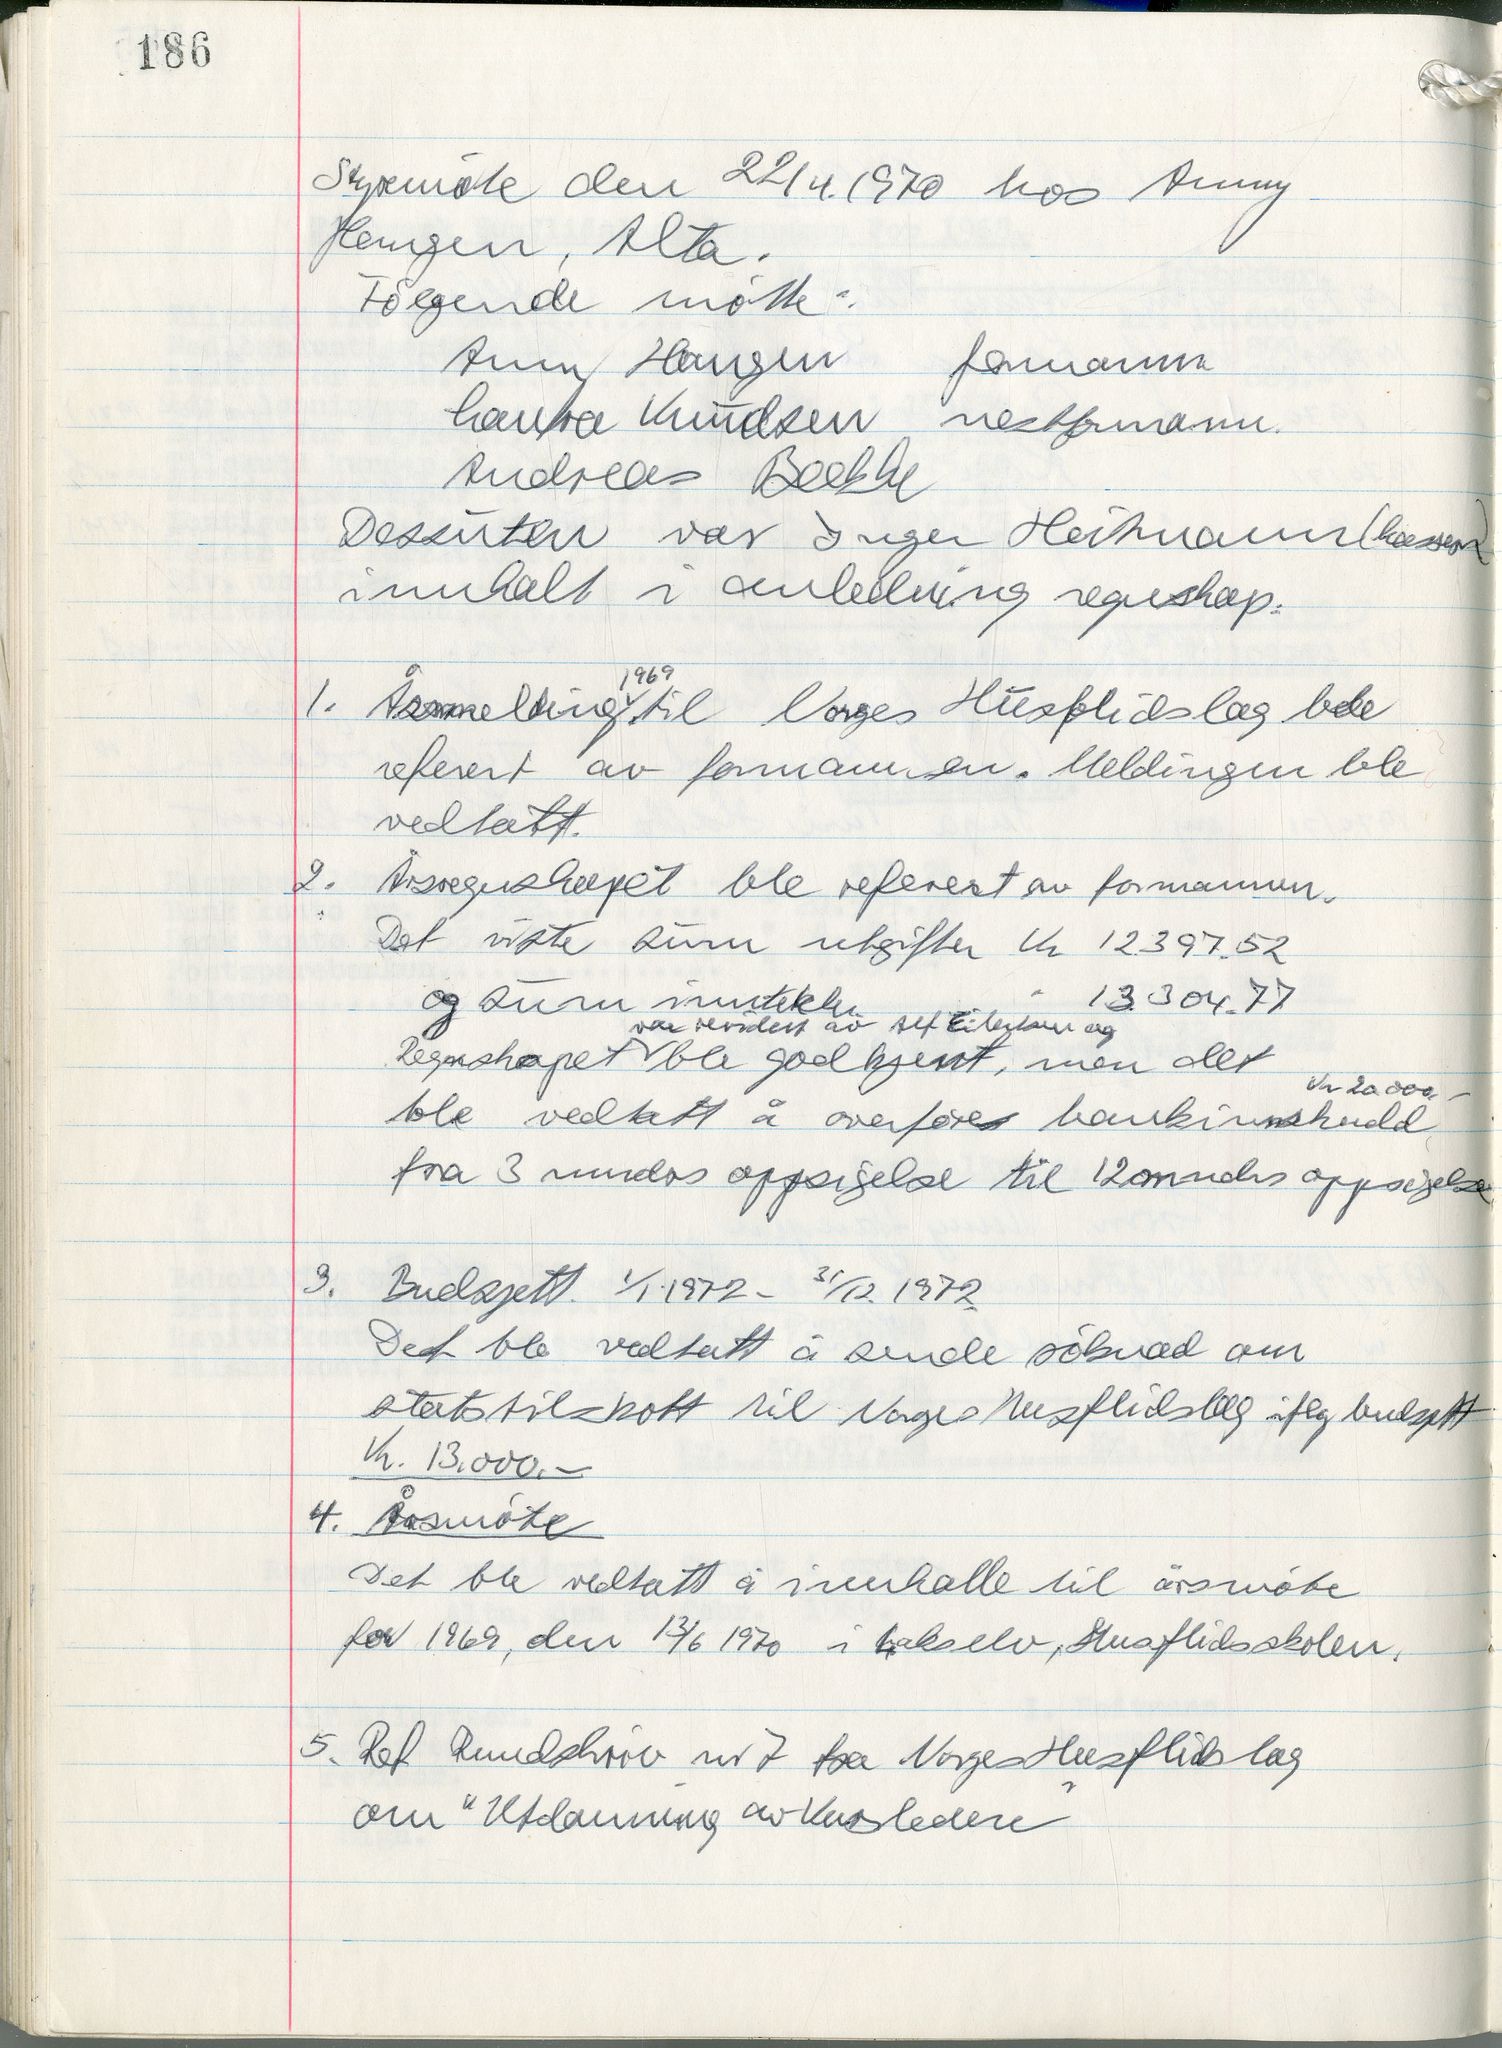 186
Styremöte den 22/4.1970 hos Anny
Haugen, Alta.
Fölgende mötte:
Anny Haugen formann
Laura Knudsen nestformann.
Andreas Bække
Dessuten var Inger Heitmann (kasserer)
innkalt i anledning regnskap.
1. Årsmelding 1969 til Norges Husflidslag ble
referert av formannen. Meldingen ble
vedtatt.
2. Årsregnskapet ble referert av formannen.
Det viste sum utgifter Kr 12397.52
og sum inntekter " 13304.77
var revidert av Alf Eilertsen og
Regnskapet ble godkjent, men det
Kr 20.000.-
ble vedtatt å overføres bankinnskudd
fra 3 mndrs oppsigelse til 12 mndrs oppsigelse
3. Budsjett 1/1.1972 - 31/12 1972
Det ble vedtatt å sende söknad om
statstilskott til Norges Husflidslag iflg budsjett
Kr. 13.000.-
4. Årsmöte
Det ble vedtatt å innkalle til årsmöte
for 1969, den 13/6 1970 i Lakselv, Husflidsskolen.
5. Ref Rundskriv nr 7 fra Norges Husflidslag
om "Utdanning av Kursledere"